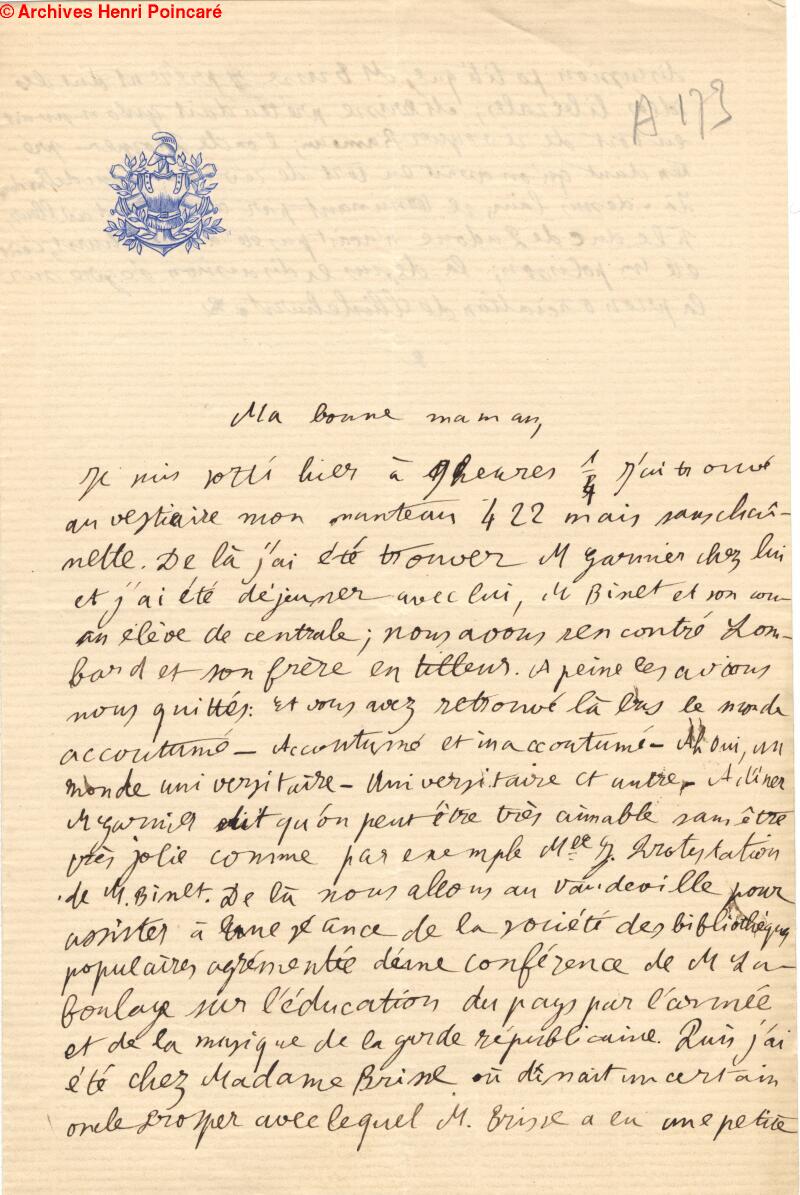 © Archives Henri Poincaré
A 173
Ma bonne maman,
Je suis sorti hier à 9 heures 1/4 j'ai trouvé
au vestiaire mon manteau 422 mais sans chaî-
nette. De là j'ai été trouver M Garnier chez lui
et j'ai été déjeuner avec lui, M Binet et son cou-
an élève de centrale ; nous avons rencontré Lom-
bard et son frère en tilleur. A peine les avions
nous quittés : Et vous avez retrouvé là bas le monde
accoutumé – Accoutumé et inaccoutumé – Ah oui, un
monde universitaire – Universitaire et autre – A dîner
M Garnier dit qu'on peut être très aimable sans être
très jolie comme par exemple Mlle J. Protestation
de M. Binet. De là nous allons au Vaudeville pour
assister à une séance de la société des bibliothèques
populaires agrémentée d'une conférence de M La-
boulaye sur l'éducation du pays par l'armée
et de la musique de la garde républicaine. Puis j'ai
été chez Madame Brisse où dînait un certain
oncle Prosper avec lequel M. Brisse a eu une petite